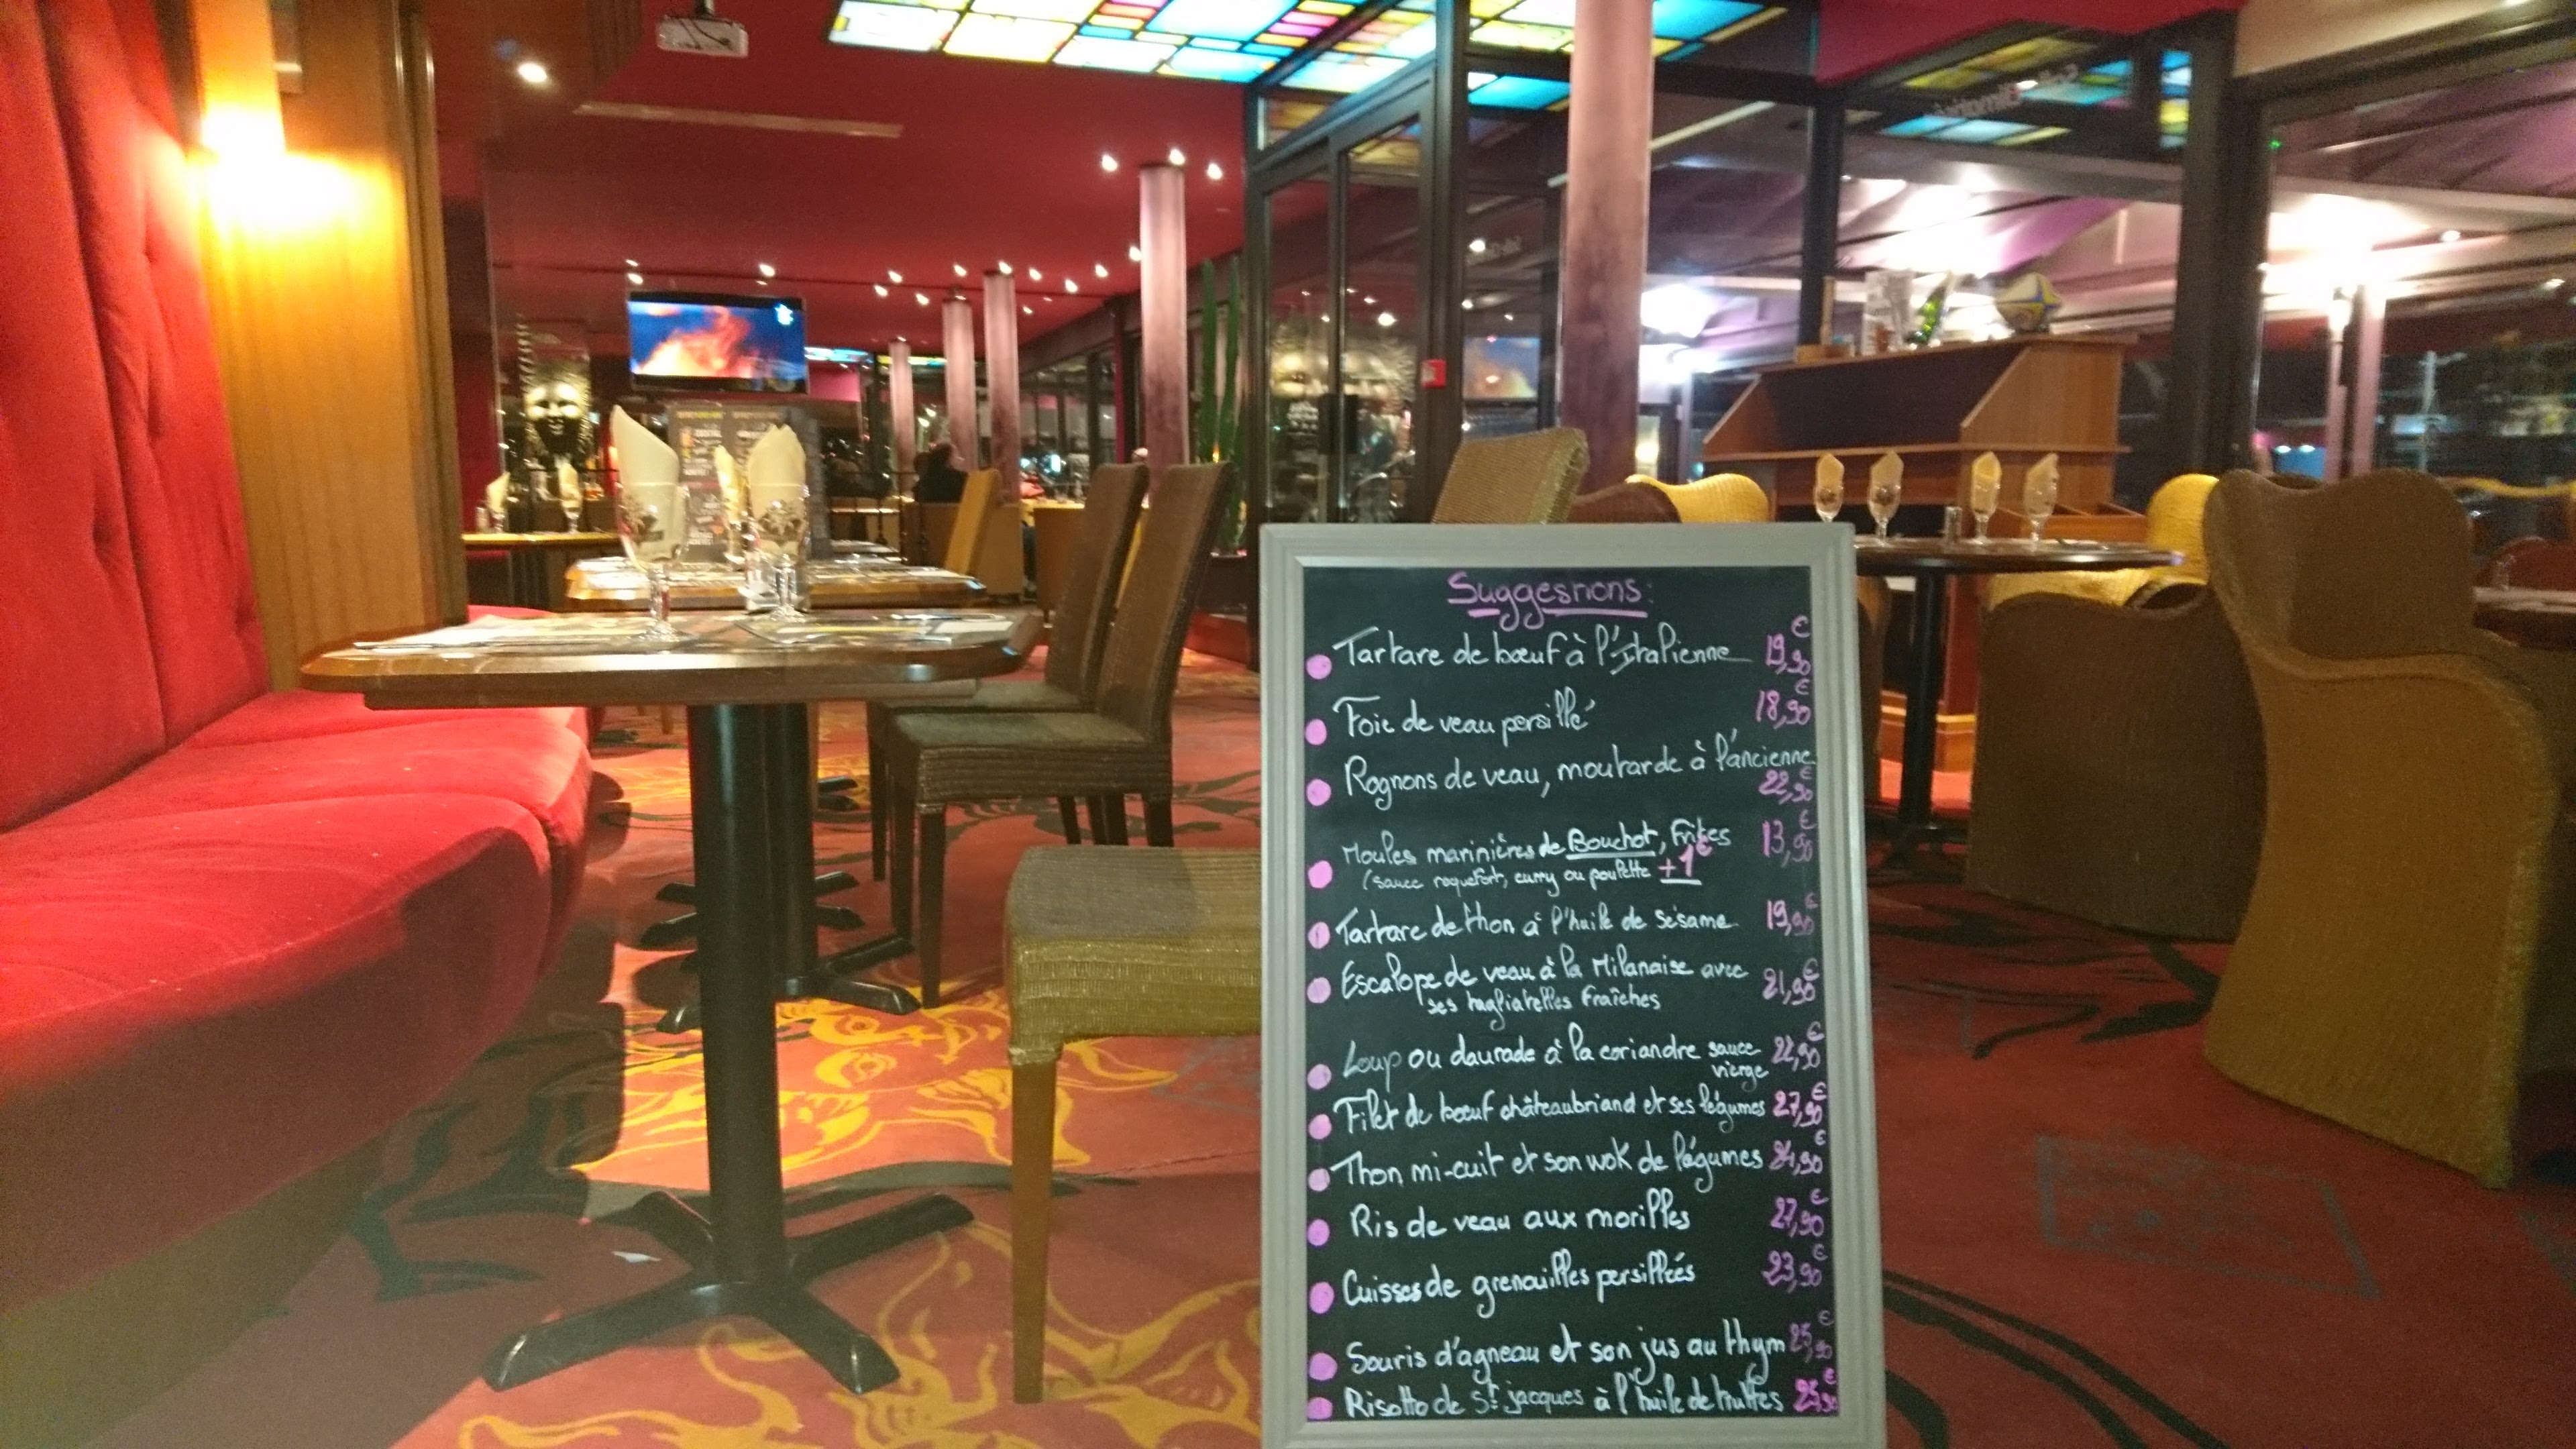 Suggestions:
Tartare de bœuf à l'Italienne 19,90€
Foie de veau persillé 18,90€
Rognons de veau, moutarde à l'ancienne
22,90€
Moules marinières de Bouchot, Frites 13,90€
(sauce roquefort, curry ou poulette +1€
Tartare de thon à l'huile de sésame 19,90€
Escalope de veau à la Milanaise avec 21,90€
ses tagliatelles fraîches
Loup ou daurade à la coriandre sauce 22,90€
vierge
Filet de bœuf châteaubriand et ses légumes 27,90€
Thon mi-cuit et son wok de légumes 24,90€
Ris de veau aux morilles 27,90€
Cuisses de grenouilles persillées 23,90€
Souris d'agneau et son jus au thym 25,90€
Risotto de St jacques à l'huile de truffes 25,90